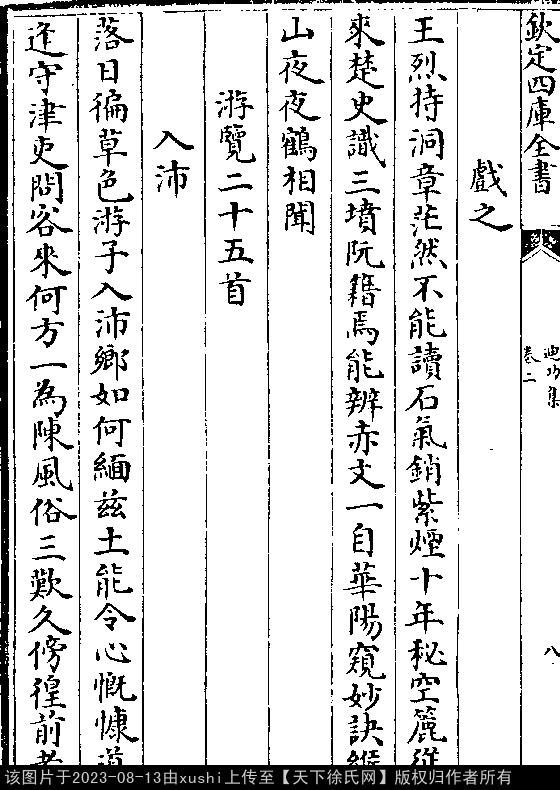 欽定四庫全書
迪功集
卷二
八
戲之
王烈持洞章茫然不能讀石氣銷紫煙十年秘空簏從
來楚史識三墳阮籍焉能辨赤文一自華陽窺妙訣緱
山夜夜鶴相聞
游覽二十五首
入沛
落日徧草色游子入沛鄉如何緬兹土能令心慨慷道
逢守津吏問客來何方一為陳風俗三歎久傍徨前
该图片于2023-08-13由xushi上传至【天下徐氏网】版权归作者所有